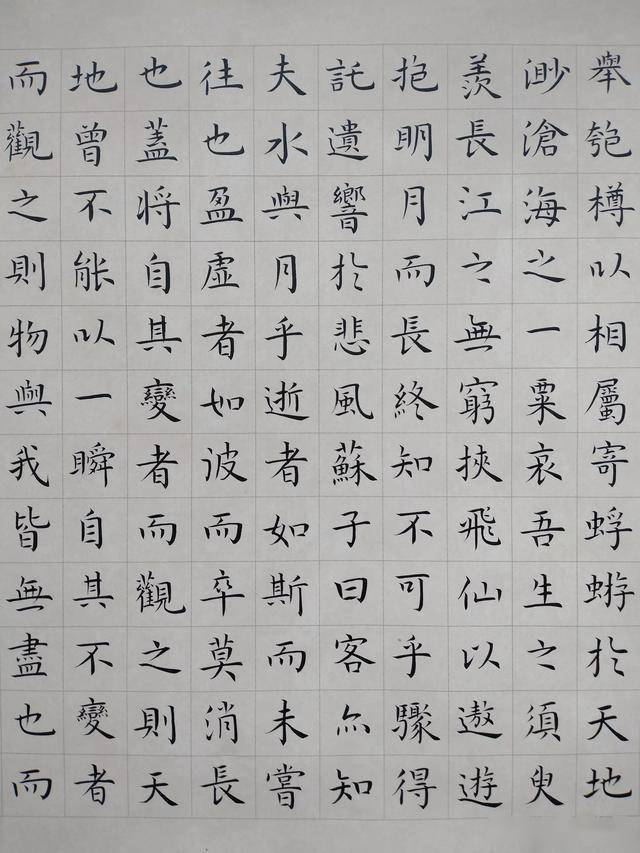 舉匏樽以相屬寄蜉蝣於天地
渺滄海之一粟哀吾生之須臾
羨長江之無窮挾飛仙以遨遊
抱明月而長終知不可乎驟得
託遺響於悲風蘇子曰客亦知
夫水與月乎逝者如斯而未嘗
往也盈虛者如彼而卒莫消長
也蓋將自其變者而觀之則天
地曾不能以一瞬自其不變者
而觀之則物與我皆無盡也而